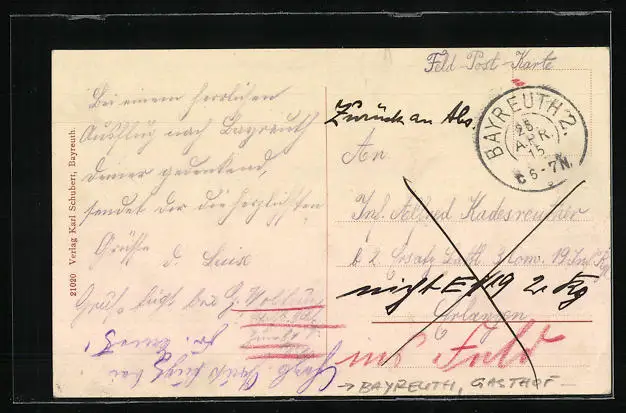 Feld-Post-Karte
BAYREUTH 2
25
APR.
15
6-7N.
Zurück an Abs.
Bei einem herrlichen
Ausflug nach Bayreuth
deiner gedenkend,
sendet dir die herzlichsten
Grüße
d. Luise
Gruß fügt bei G.
An
Inf. Alfred Kadesreuther
2. Ersatz Battl. 3 Kom. 19 Inf. Rg
nicht E/19 2. Kg
Erlangen
ins Feld
→ BAYREUTH, GASTHOF
21020 Verlag Karl Schubert, Bayreuth.